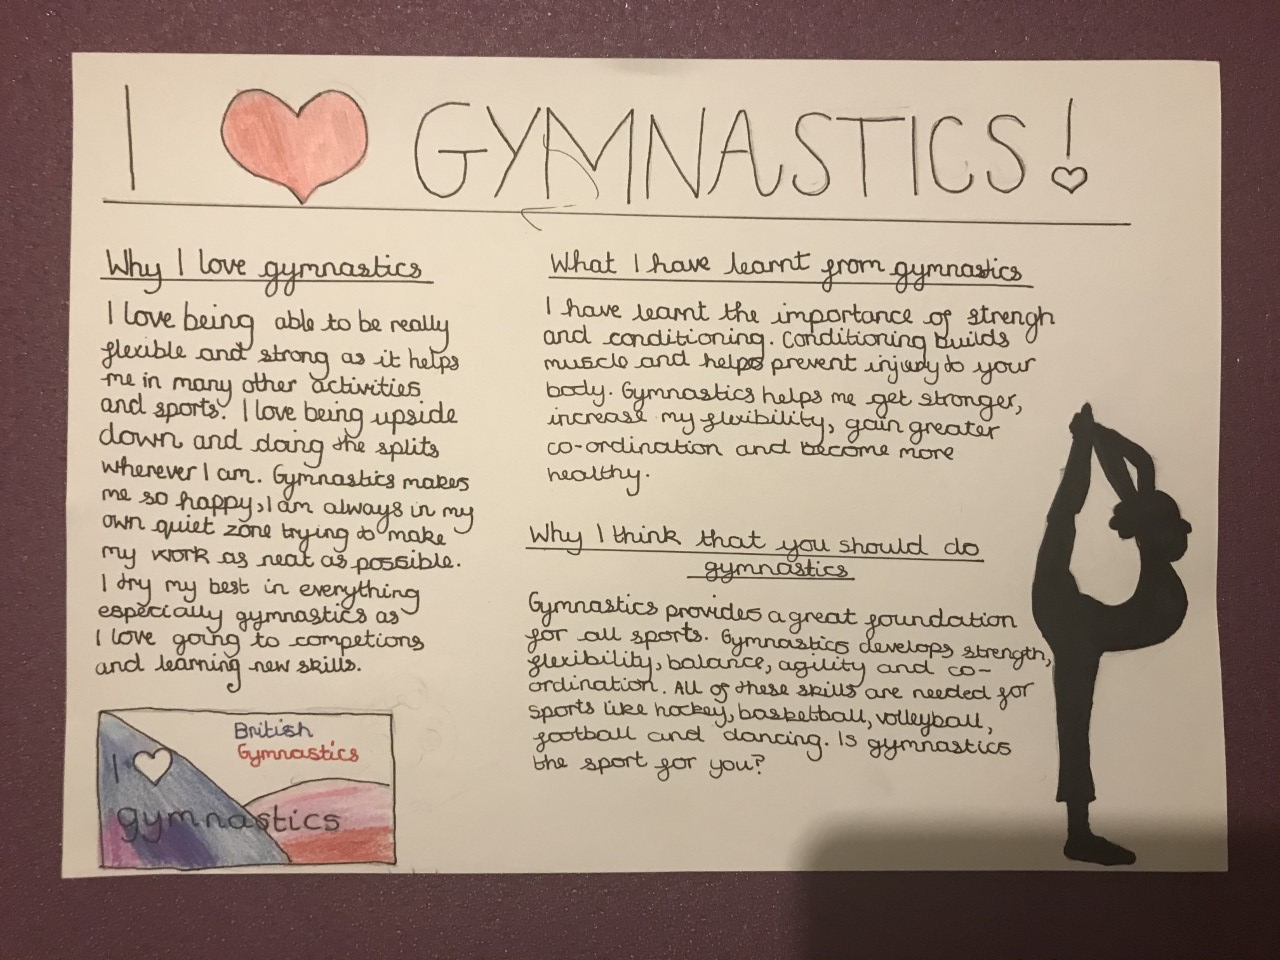 I ♥ GYMNASTICS!
Why I love gymnastics
I love being able to be really
flexible and strong as it helps
me in many other activities
and sports. I love being upside
down and doing the splits
wherever I am. Gymnastics makes
me so happy, I am always in my
own quiet zone trying to make
my work as neat as possible.
I try my best in everything
especially gymnastics as
I love going to competions
and learning new skills.
British
Gymnastics
I ♥
gymnastics
What I have learnt from gymnastics
I have learnt the importance of strengh
and conditioning. Conditioning builds
muscle and helps prevent injury to your
body. Gymnastics helps me get stronger,
increase my flexibility, gain greater
co-ordination and become more
healthy.
Why I think that you should do
gymnastics
Gymnastics provides a great foundation
for all sports. Gymnastics develops strength,
flexibility, balance, agility and co-
ordination. All of these skills are needed for
sports like hockey, basketball, volleyball,
football and dancing. Is gymnastics
the sport for you?